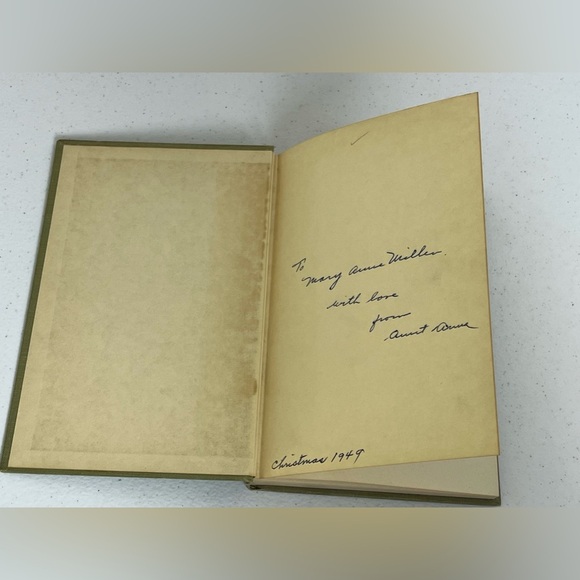 To
Mary Anne Miller.
with love
from
Aunt Anne
Christmas 1949